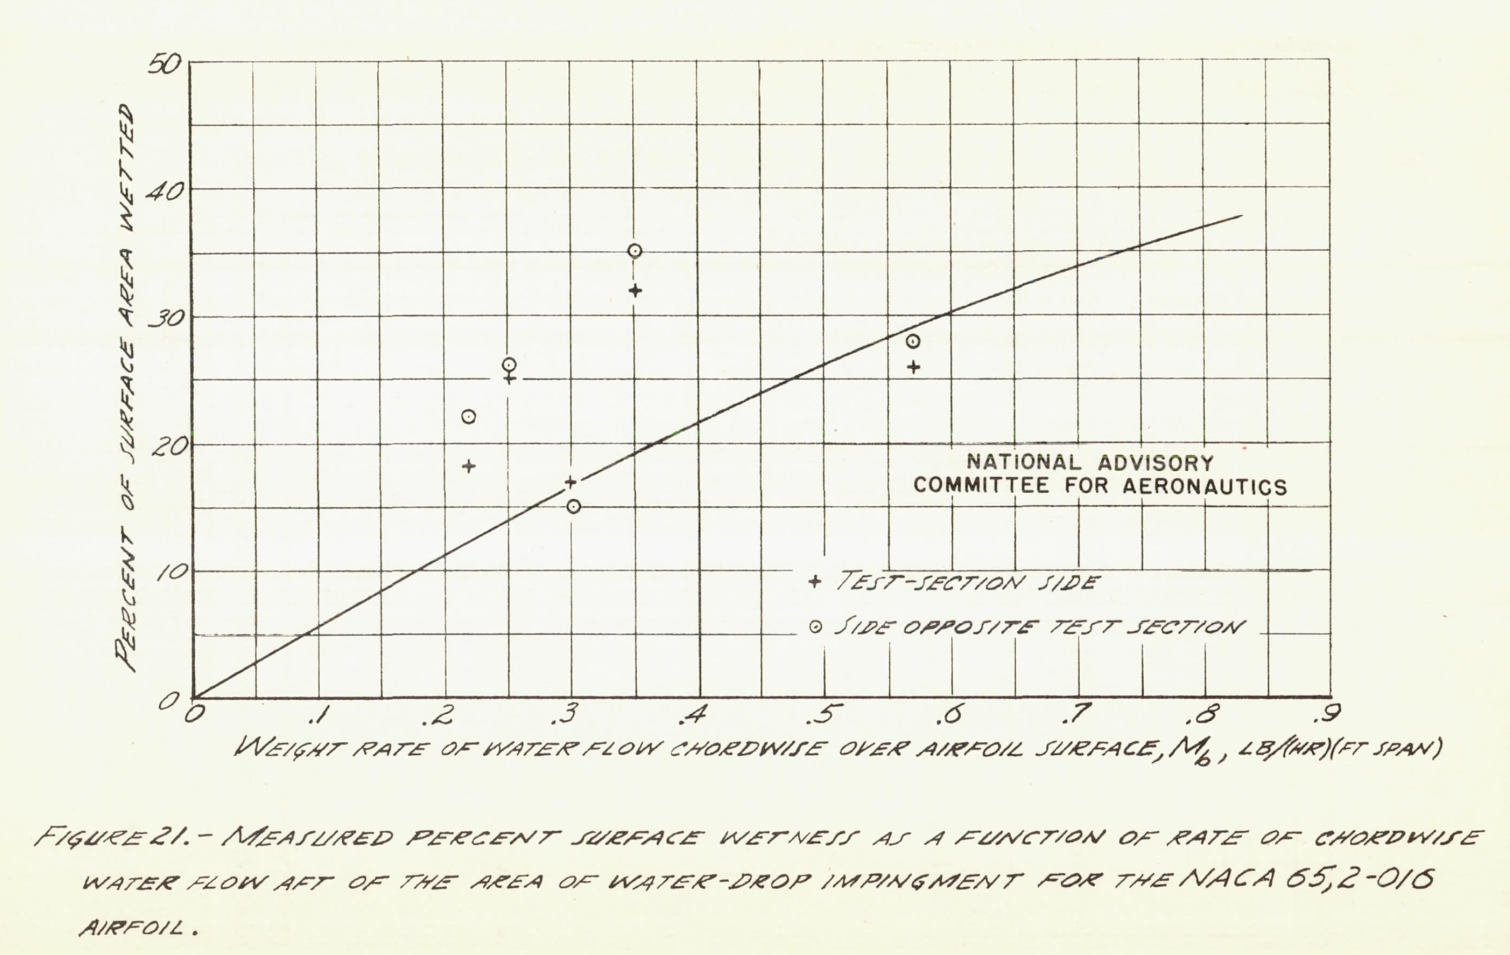 50
40
30
20
10
0
PERCENT OF SURFACE AREA WETTED
NATIONAL ADVISORY
COMMITTEE FOR AERONAUTICS
+ TEST-SECTION SIDE
⊙ SIDE OPPOSITE TEST SECTION
0 .1 .2 .3 .4 .5 .6 .7 .8 .9
WEIGHT RATE OF WATER FLOW CHORDWISE OVER AIRFOIL SURFACE, Mb, LB/(HR)(FT SPAN)
FIGURE 21.- MEASURED PERCENT SURFACE WETNESS AS A FUNCTION OF RATE OF CHORDWISE
WATER FLOW AFT OF THE AREA OF WATER-DROP IMPINGMENT FOR THE NACA 65,2-016
AIRFOIL.